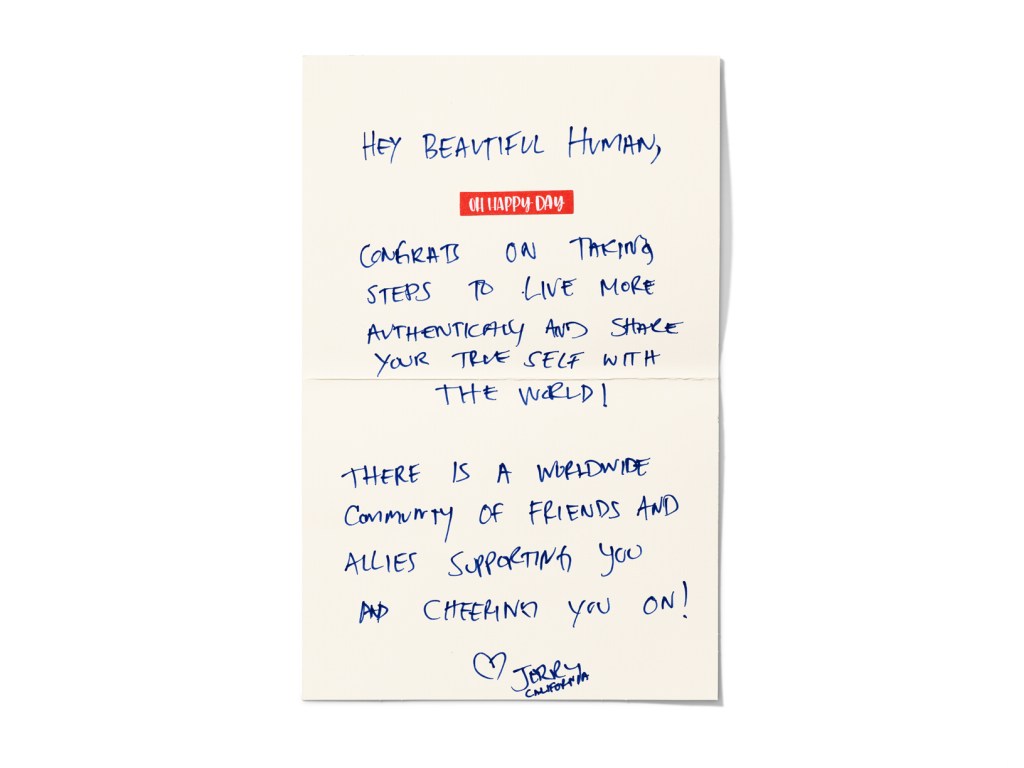 HEY BEAUTIFUL HUMAN,
OH HAPPY DAY
CONGRATS ON TAKING
STEPS TO LIVE MORE
AUTHENTICALLY AND SHARE
YOUR TRUE SELF WITH
THE WORLD!
THERE IS A WORLDWIDE
COMMUNITY OF FRIENDS AND
ALLIES SUPPORTING YOU
AND CHEERING YOU ON!
JERRY
CALIFORNIA